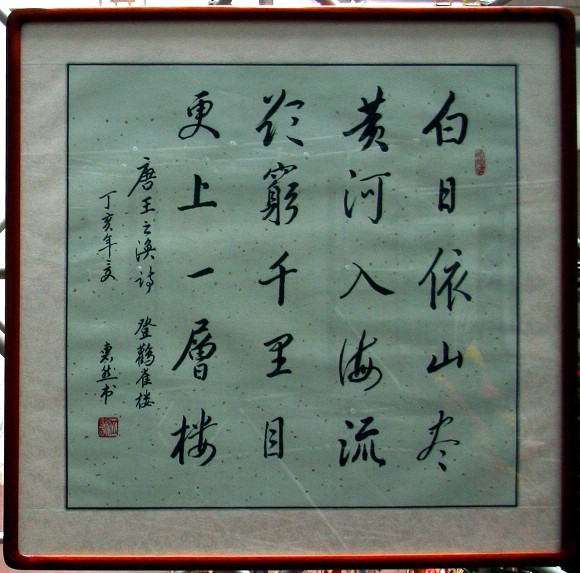 白日依山尽
黄河入海流
欲窮千里目
更上一層楼
唐王之渙诗 登鹳雀楼
丁亥年夏 然书